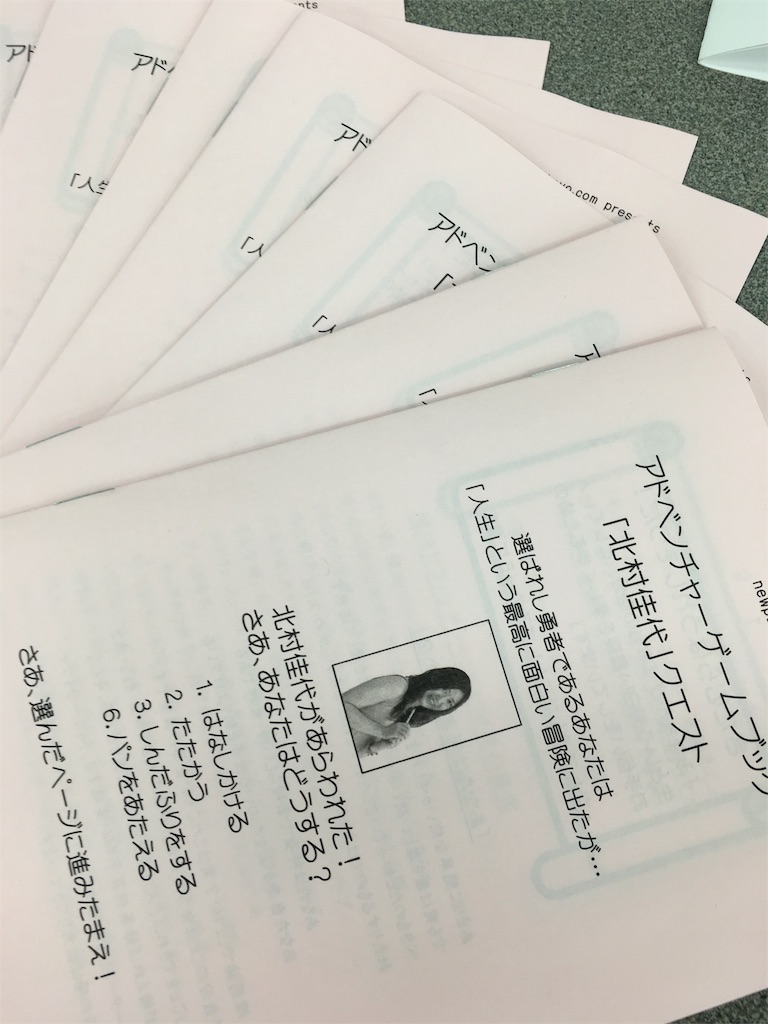 アドベンチャーゲームブック
「北村佳代」クエスト
選ばれし勇者であるあなたは
「人生」という最高に面白い冒険に出たが…
北村佳代があらわれた！
さあ、あなたはどうする？
1. はなしかける
2. たたかう
3. しんだふりをする
6. パンをあたえる
さあ、選んだページに進みたまえ！
アドベン
アド
「人
アド
「人
アド
「人生
アド
.com presents